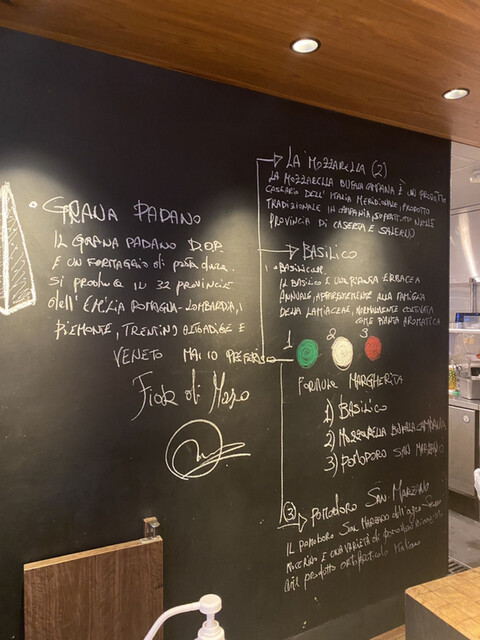 GRANA PADANO
IL GRANA PADANO D.O.P.
E UN FORMAGGIO di pasta dura.
si produce in 32 provincie
dell'EMILIA ROMAGNA-LOMBARDIA,
PIEMONTE, TRENTINO ALTOADIGE E
VENETO MA IO PREFERISCO
Fiore di
LA MOZZARELLA (2)
LA MOZZARELLA BUFALA CAMPANA È UN PRODOTTO
CASEARIO DELL'ITALIA MERIDIONALE, PRODOTTO
TRADIZIONALE IN CAMPANIA, SOPRATTUTTO NELLE
PROVINCIA DI CASERTA E SALERNO
BASILICO
IL BASILICO E UNA PIANTA ERBACEA
ANNUALE, APPARTENENTE ALLA FAMIGLIA
DELLA LAMIACEAE, NORMALMENTE COLTIVATA
COME PIANTA AROMATICA
1 2 3
FORMULA MARGHERITA
1) BASILICO
2) MOZZARELLA BUFALA CAMPANA
3) POMODORO SAN MARZANO
3 POMODORO SAN MARZANO
IL POMODORO SAN MARZANO dell'agro
NOCERINO E UNA VARIETÀ di pomodoro
prodotto ortofrutticolo italiano